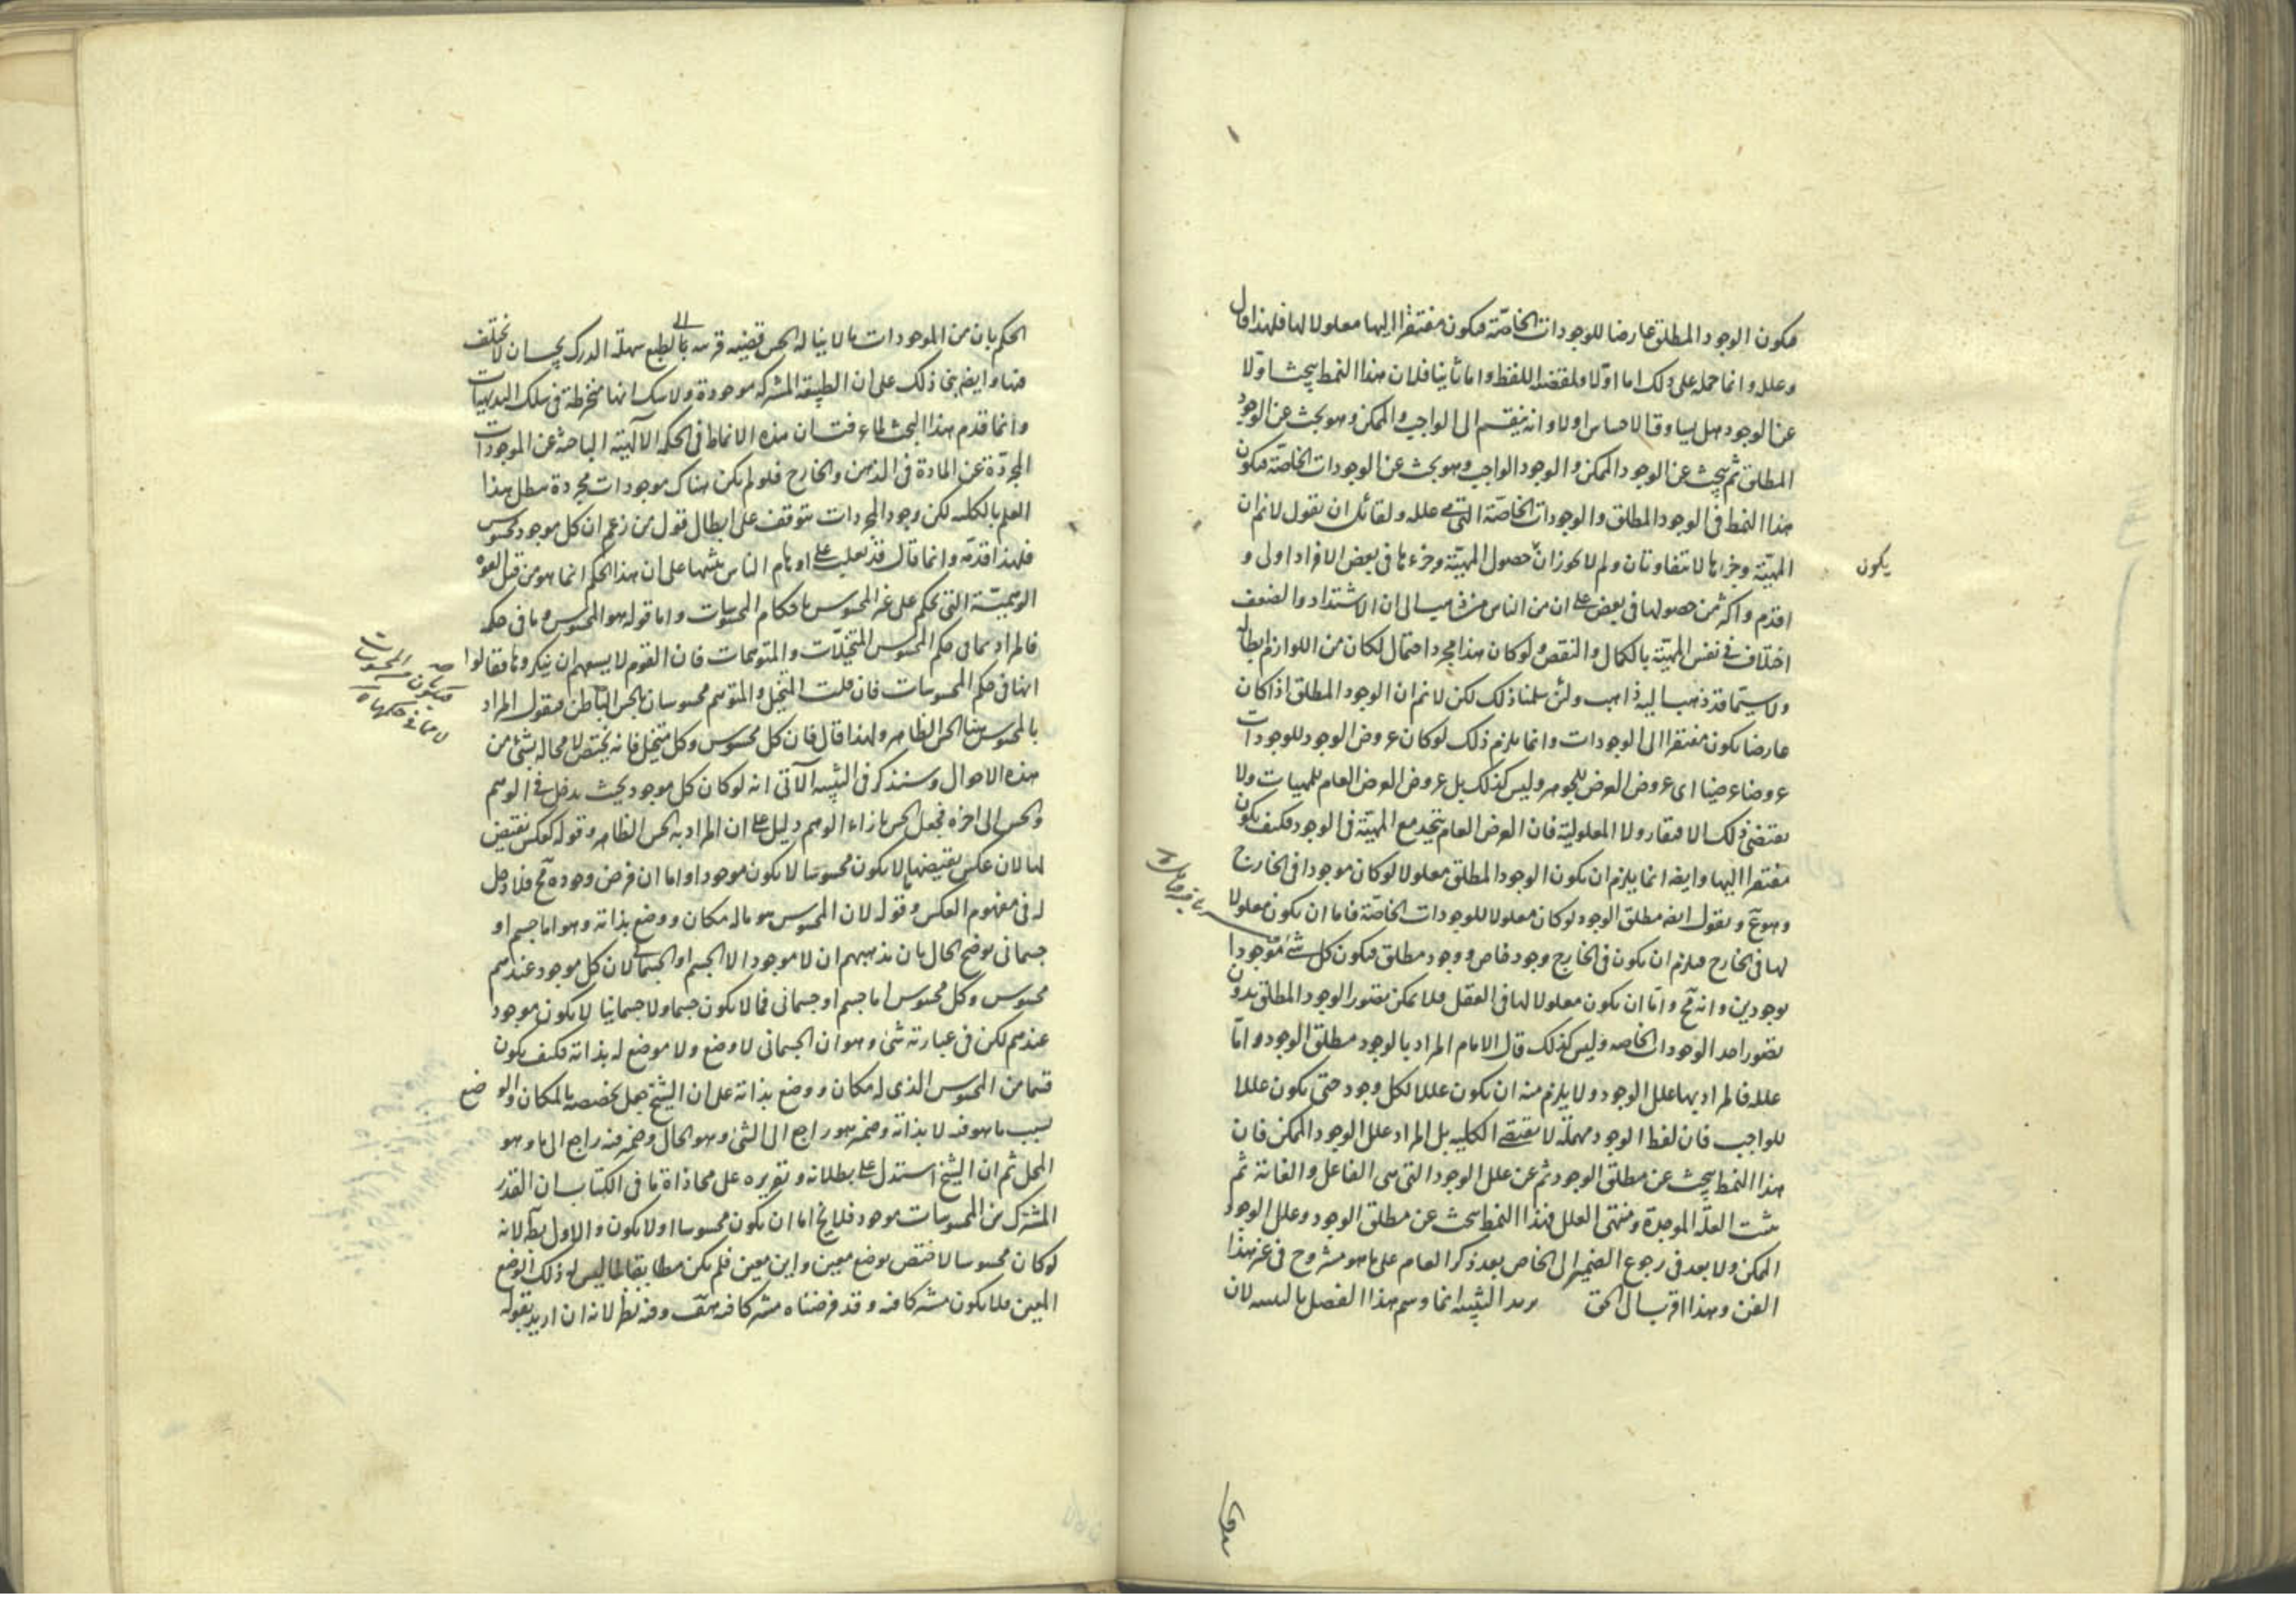 فيكون الوجود المطلق عارضا للوجودات الخاصة فيكون مفتقرا اليها معلولا لها فلهذا قال
وعلله وانما حمله على ذلك اما اولا فلمقتضى اللفظ واما ثانيا فلان هذا النمط يبحث اولا
عن الوجود هل يساوق الاحساس اولا وانه ينقسم الى الواجب والممكن وهو بحث عن الوجود
المطلق ثم يبحث عن الوجود الممكن والوجود الواجب وهو بحث عن الوجودات الخاصة فيكون
هذا النمط في الوجود المطلق والوجودات الخاصة التي هي علله ولقائل ان يقول لا نم ان
المهية وجزءها لا يتفاوتان ولم لا يجوز ان حصول المهية وجزءها في بعض الافراد اولى و
يكون
اقدم واكثر من حصولها في بعض على ان من الناس من ذهب الى ان الاشتداد والضعف
اختلاف في نفس المهية بالكمال والنقص ولو كان هذا مجرد احتمال لكان من اللوازم ابطاله
ولا سيما قد ذهب اليه ذاهب ولئن سلمنا ذلك لكن لا نم ان الوجود المطلق اذا كان
عارضا يكون مفتقرا الى الوجودات وانما يلزم ذلك لو كان عروض الوجود للوجودات
عروضا عينيا اى عروض العرض للجوهر وليس كذلك بل عروض العرض العام للمهيات ولا
يقتضى ذلك الافتقار ولا المعلولية فان العرض العام يتحد مع المهية في الوجود فكيف يكون
مفتقرا اليها وايضه انما يلزم ان يكون الوجود المطلق معلولا لو كان موجودا في الخارج
وهو مم ونقول ايضه مطلق الوجود لو كان معلولا للوجودات الخاصة فاما ان يكون معلولا
لها في الخارج فيلزم ان يكون في الخارج وجود خاص ووجود مطلق فيكون كل شئ موجودا
بوجودين وانه مح واما ان يكون معلولا لها في العقل فلا يمكن تصور الوجود المطلق بدون
تصور احد الوجودات الخاصه وليس كذلك قال الامام المراد بالوجود مطلق الوجود واما
علله فالمراد بها علل الوجود ولا يلزم منه ان يكون عللا لكل وجود حتى يكون عللا
للواجب فان لفظ الوجود مهملة لا يقتضي الكليه بل المراد علل الوجود الممكن فان
هذا النمط يبحث عن مطلق الوجود ثم عن علل الوجود التي هي الفاعل والغاية ثم
يثبت العلة الموجدة ومنتهى العلل فهذا النمط يبحث عن مطلق الوجود وعلل الوجود
الممكن ولا بعد في رجوع الضمير الى الخاص بعد ذكر العام على ما هو مشروح في غير هذا
الفن وهذا اقرب الى الحق يريد التنبيه انما وسم هذا الفصل بالتنبيه لان
الحكم بان من الموجودات ما لا يناله الحس قضيه قريبه الى الطبع سهلة الدرك يجب ان لا يختلف
فيها وايضه بنى ذلك على ان الطبيعة المشتركه موجودة ولا شك انها منخرطة في سلك البديهيات
وانما قدم هذا البحث لما عرفت ان هذه الانماط في الحكمه الآلهية الباحثة عن الموجودات
المجردة عن المادة في الذهن والخارج فلو لم يكن هناك موجودات مجردة بطل هذا
العلم بالكليه لكن وجود المجردات يتوقف على ابطال قول من زعم ان كل موجود محسوس
فلهذا قدمه وانما قال قد يغلب على اوهام الناس تنبيها على ان هذا الحكم انما هو من قبل القوة
الوهمية التي تحكم على غير المحسوس باحكام المحسوسات واما قوله هو المحسوس وما في حكمه
فالمراد بما في حكم المحسوس المتخيلات والمتوهمات فان القوم لا يسعهم ان ينكروها فقالوا
انها في حكم المحسوسات فان قلت المتخيل والمتوهم محسوسان بالحس الباطن فنقول المراد
فيكون من المحسوسات
لا مما في حكمها
بالمحسوس هنا الحس الظاهر ولهذا قال فان كل محسوس وكل متخيل فانه يختص لا محالة بشئ من
هذه الاحوال وسنذكر في التنبيه الآتي انه لو كان كل موجود بحيث يدخل في الوهم
والحس الى اخره فجعل الحس بازاء الوهم دليل على ان المراد به الحس الظاهر وقوله كعكس نقيض
لها لان عكس نقيضها ما لا يكون محسوسا لا يكون موجودا واما ان فرض وجوده مح فلا دخل
له في مفهوم العكس وقوله لان المحسوس هو ما له مكان ووضع بذاته وهو اما جسم او
جسماني يوضح الحال بان مذهبهم ان لا موجود الا الجسم او الجسماني لان كل موجود عندهم
محسوس وكل محسوس اما جسم او جسماني فما لا يكون جسما ولا جسمانيا لا يكون موجود
عندهم لكن في عبارته شئ وهو ان الجسماني لا وضع ولا موضع له بذاته فكيف يكون
قسما من المحسوس الذي له مكان ووضع بذاته على ان الشيخ جعل تخصصه بالمكان والوضع
بسبب ما هو فيه لا بذاته وضمير هو راجع الى الشئ وهو الحال وضمير فيه راجع الى ما وهو
المحل ثم ان الشيخ استدل على بطلانه وتقريره على محاذاة ما في الكتاب ان القدر
المشترك من المحسوسات موجود فلا يخ اما ان يكون محسوسا اولا يكون والاول بط لانه
لو كان محسوسا لاختص بوضع معين واين معين فلم يكن مطابقا لما ليس له ذلك الوضع
المعين فلا يكون مشتركا فيه وقد فرضناه مشتركا فيه هف وفيه نظر لانه ان اريد بقوله